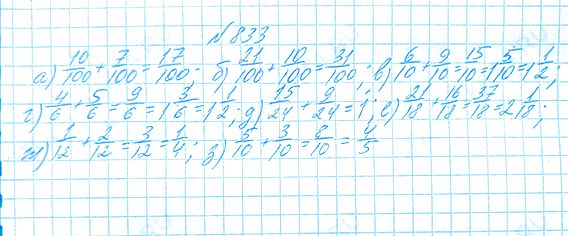 № 833
а) 10/100 + 7/100 = 17/100; б) 21/100 + 10/100 = 31/100; в) 6/10 + 9/10 = 15/10 = 1 5/10 = 1 1/2;
г) 4/6 + 5/6 = 9/6 = 1 3/6 = 1 1/2; д) 15/24 + 9/24 = 1; е) 21/18 + 16/18 = 37/18 = 2 1/18;
ж) 1/12 + 2/12 = 3/12 = 1/4; з) 5/10 + 3/10 = 8/10 = 4/5